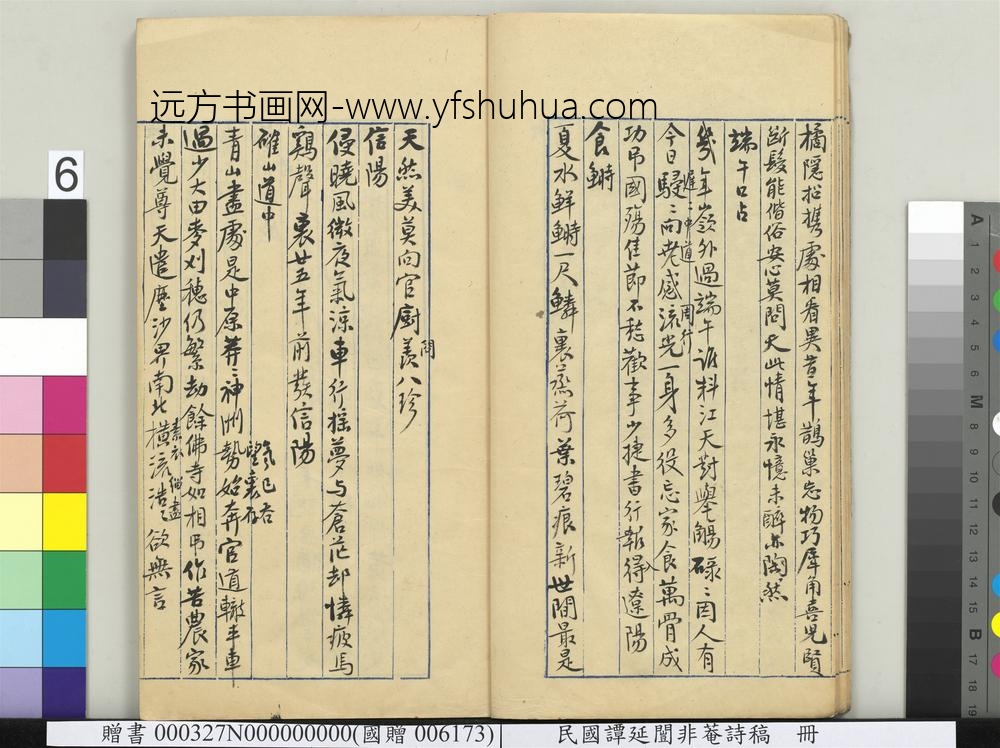 远方书画网-www.yfshuhua.com
橘隱招攜處相看異昔年鵲巢忘物巧犀角喜兒賢
斷髮能偕俗安心莫問天此情堪永憶未醉亦陶然
端午口占
幾年嶺外過端午誰料江天對舉觴碌碌因人有
遲遲中道
周行
今日駸駸向老感流光一身多役忘家食萬骨成
功弔國殤佳節不愁歡事少捷書行報得遼陽
食鰣
夏水鮮鰣一尺鱗裏蒸荷葉碧痕新世間最是
天然美莫向官廚羨八珍
信陽
侵曉風微夜氣涼車行搖夢与蒼茫却憐疲馬
鷄聲裏廿五年前發信陽
確山道中
青山盡處是中原莽莽神州勢始奔官道轍車車
氣已吞
望裏存
過少大田麥刈穗仍繁劫餘佛寺如相弔作苦農家
未覺尊天遣塵沙界南北橫流浩浩欲無言
素衣緇盡
6
A
1
2
3
4
5
M
8
9
10
11
12
13
14
15
B
17
18
19
贈書 000327N000000000(國贈 006173)
民國譚延闓非菴詩稿 冊